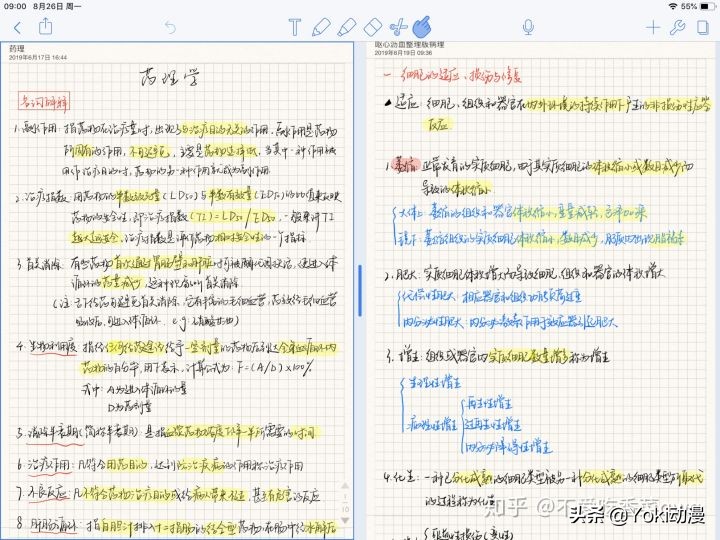 09:00 8月26日 周一
55%
药理
2019年6月17日 16:44
药理学
名词解释
1. 副作用：指药物在治疗量时，出现与治疗目的无关的作用，副作用是药物
所固有的作用，不可避免，
用作治疗目的时，药物的另一种作用就成为副作用。
2. 治疗指数：用药物的半数致死量（LD50）与半数有效量（ED50）的比值来反映
药物的安全性，即治疗指数（TI）= LD50 / ED50，一般来讲TI
越大越安全，治疗指数是评价药物相对安全性的一个指标
3. 首关消除：有些药物首次通过胃肠壁和肝脏时可被酶代谢灭活，使进入体
循环的药量减少，这种现象叫首关消除
（注：舌下给药可避免首关消除，
e.g. 硝酸甘油）
4. 生物利用度：指经过给药途径给予一定剂量的药物后到达全身血循环内
药物的百分率，用F表示，计算公式为：F=(A/D)×100%
式中：A为进入体循环的量
D为药剂量
5. 消除半衰期（简称半衰期）是指血浆药物浓度下降一半所需要的时间
6. 治疗作用：凡符合用药目的，达到防治疾病的作用称治疗作用
7. 不良反应：凡不符合药物治疗目的或给病人带来痛苦，甚至有危害的反应
8. 肝肠循环：指自胆汁排入十二指肠的结合型药物在肠中经水解后
1
10
呕心沥血整理版病理
2019年6月19日 09:36
一 细胞的适应、损伤与修复
▲适应：细胞、组织和器官在内外环境的持续作用下产生的非损伤性应答
反应
1. 萎缩：正常发育的实质细胞，因其实质细胞的体积缩小或数目减少而
导致的体积缩小
大体：萎缩的组织和器官体积缩小，重量减轻，色泽加深
镜下：萎缩组织的实质细胞体积缩小，数目减少，胞质内出现脂褐素
2. 肥大：实质细胞体积增大而导致细胞、组织和器官的体积增大
代偿性肥大：相应器官和组织功能负荷过重
内分泌性肥大：内分泌激素作用于效应器引起肥大
3. 增生：组织或器官内实质细胞数量增多称为增生
生理性增生
病理性增生
再生性增生
过再生性增生
内分泌障碍性增生
4. 化生：一种已分化成熟的细胞类型被另一种分化成熟的细胞类型所取代
的过程称为化生
知乎 @不爱吃香菜
头条 @Yoki动漫